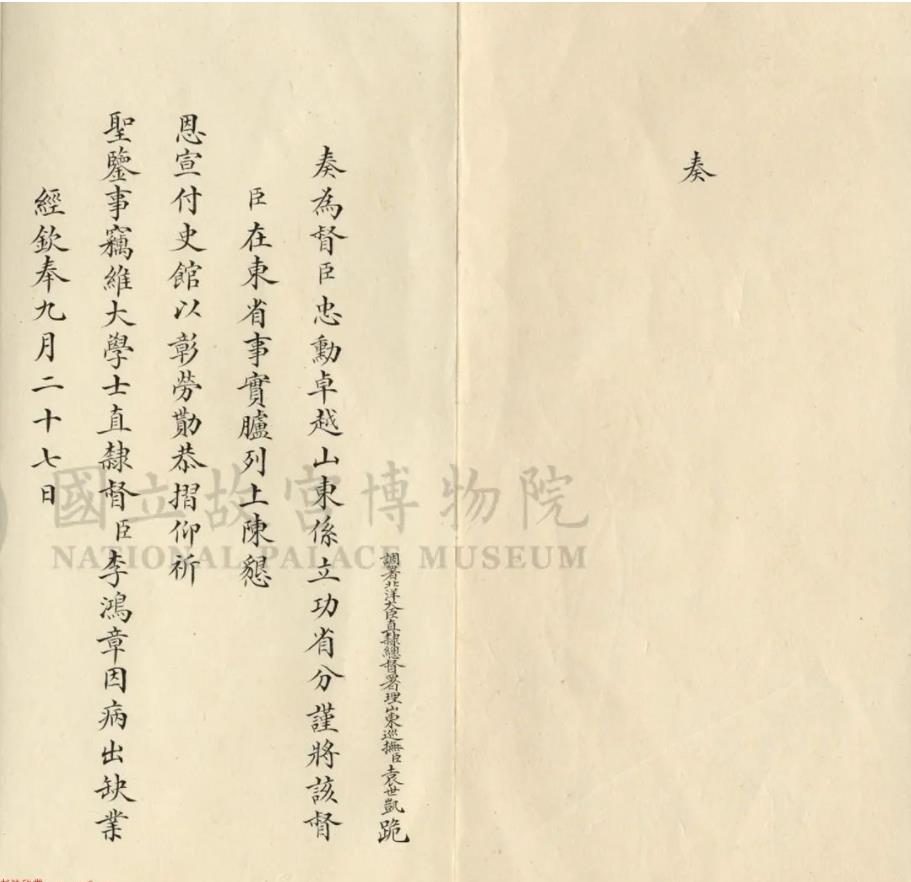 奏
調署北洋大臣直隸總督署理山東巡撫臣袁世凱跪
奏為督臣忠勳卓越山東係立功省分謹將該督
臣在東省事實臚列上陳懇
恩宣付史館以彰勞勩恭摺仰祈
聖鑒事竊維大學士直隸督臣李鴻章因病出缺業
經欽奉九月二十七日
國立故宮博物院
NATIONAL PALACE MUSEUM